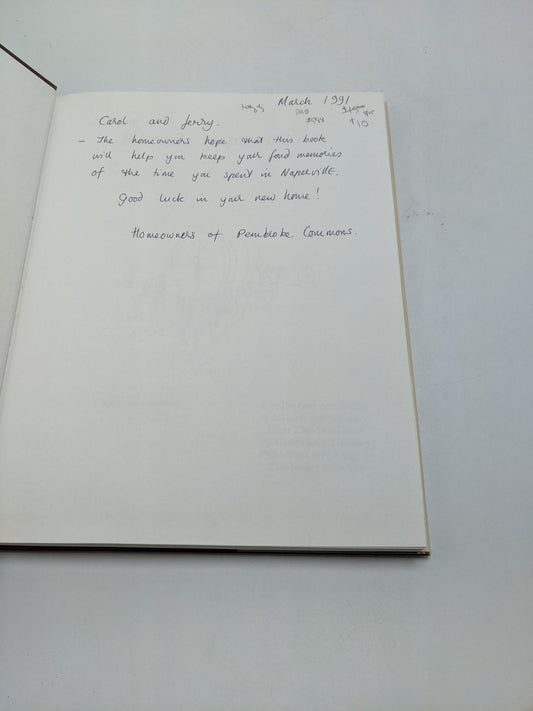 March 1991
$10
Carol and Jerry.
- The homeowners hope that this book
will help you keep your fond memories
of the time you spent in Naperville.
good luck in your new home!
Homeowners of Pembroke Commons.